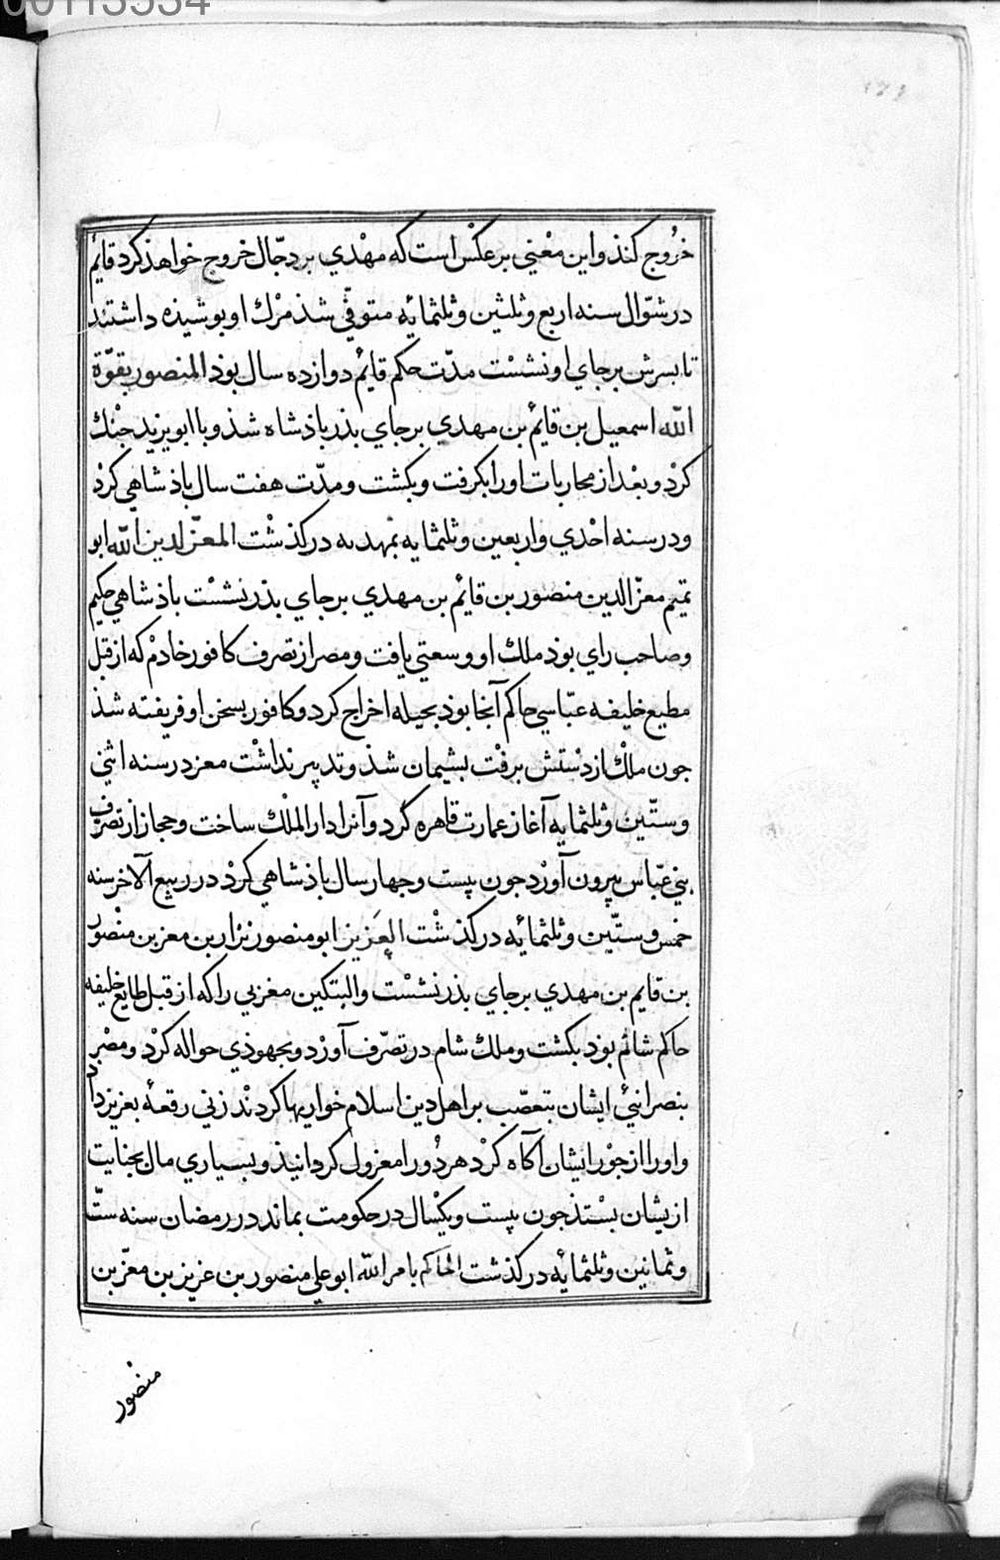 00113534
خروج کنذ واین معْنِی برعکس است که مهْدی بر دجّال خروج خواهذ کرد قایم
در شوّال سنه اربع وثلثین وثلثمایه متوفّی شذ مرك او بوشیذه داشتند
تا بسرش برجای او نشسْت مدّت حکم قایم دوازده سال بوذ المنصور بقوّة
الله اسمعیل بن قایم بن مهدی برجای بذر باذشاه شذ وبا ابویزید جنْك
کرْد وبعْد از محاربات اورا بکرفت وبکشت ومدّت هفت سال باذشاهی کرد
ودر سنه احْدی واربعین وثلثمایه بمهدیه درکذشْت المعزّ لدین الله ابو
تمیم معزّ الدین منصور بن قایم بن مهدی برجای بذر نشسْت باذشاهی حکیم
وصاحب رای بوذ ملك او وسعتی یافت ومصر از تصرف کافور خادم که از قبل
مطیع خلیفه عبّاسی حاکم آنجا بوذ بحیله اخراج کرد وکافور بسخن او فریفته شذ
جون ملْك از دستش برفْت بشیمان شذ وتدبیر نداشْت معز در سنه اثنی
وستّین وثلثمایه آغاز عمارت قاهره کرد وآنرا دار الملْك ساخت وحجاز از تصرّف
بنی عبّاس بیرون آورْد جون بیست وجهار سال باذشاهی کرْد در ربیع الآخر سنه
خمس وستّین وثلثمائه درکذشْت العَزیز ابو منصور نزار بن معز بن منْصور
بن قایم بن مهدی برجای بذر نشسْت والبتکین مغربی را که از قبل طایع خلیفه
حاکم شام بوذ بکشت وملك شام در تصرّف آورْد وبجهوذی حواله کرْد ومصْر
بنصرانیئ ایشان بتعصّب بر اهل دین اسلام خواریها کردند زنی رقعهٔ بعزیز داد
واورا از جوْر ایشان آکاه کرْد هر دُو را معزول کردانیذ وبسیاری مال بجنایت
ازیشان بسْتذ جون بیست ویکْسال در حکومت بماند در رمضان سنه ستّ
وثمانین وثلثمایه درکذشت الحاکم بامر الله ابو علی منصور بن عزیز بن معزّ بن
منصور